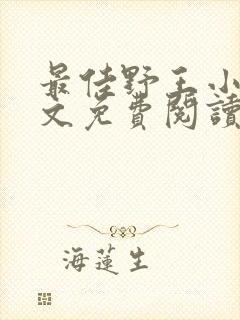 最佳野王小
文免費閱讀
海蓮生